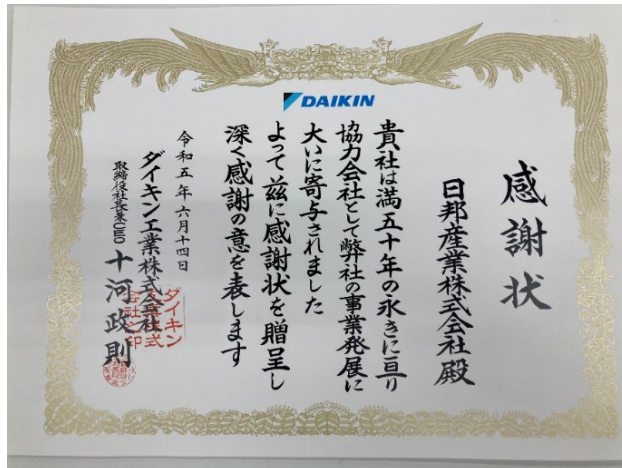 DAIKIN
感謝状
日邦産業株式会社殿
貴社は満五十年の永きに亘り
協力会社として弊社の事業発展に
大いに寄与されました
よって茲に感謝状を贈呈し
深く感謝の意を表します
令和五年六月十四日
ダイキン工業株式会社
取締役社長兼CEO 十河政則
ダイキン
工業株式
会社之印